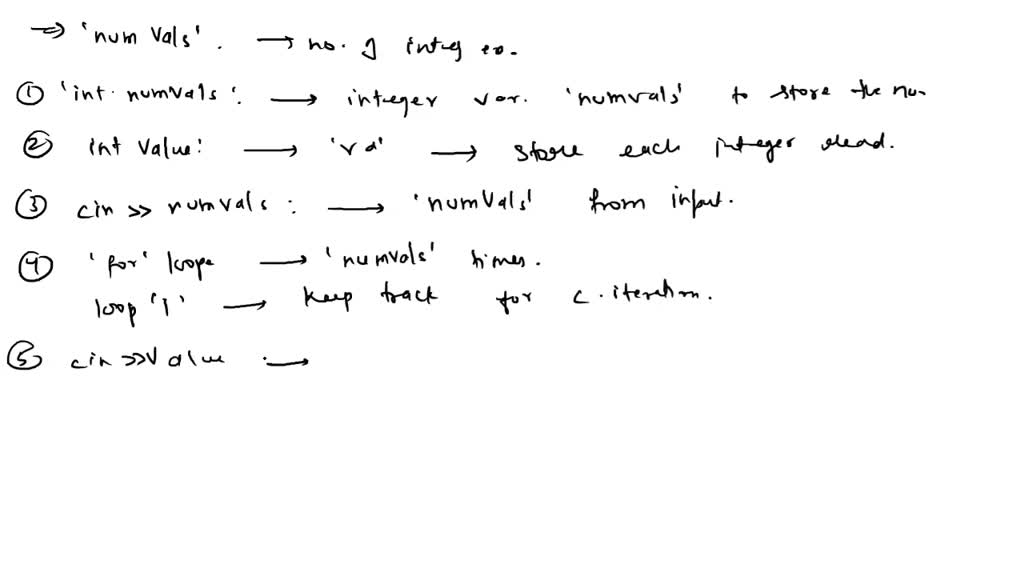 → 'num Vals'. → no. of integ
① 'int numvals'. → integer var. 'numvals' to store the no.
② int Value: → 'va' → store each integer read.
③ cin >> numvals: → 'numVals' from input.
④ 'for' loop → 'numvals' times.
loop 'i' → keep track for c. iteration.
⑤ cin >> Value :→